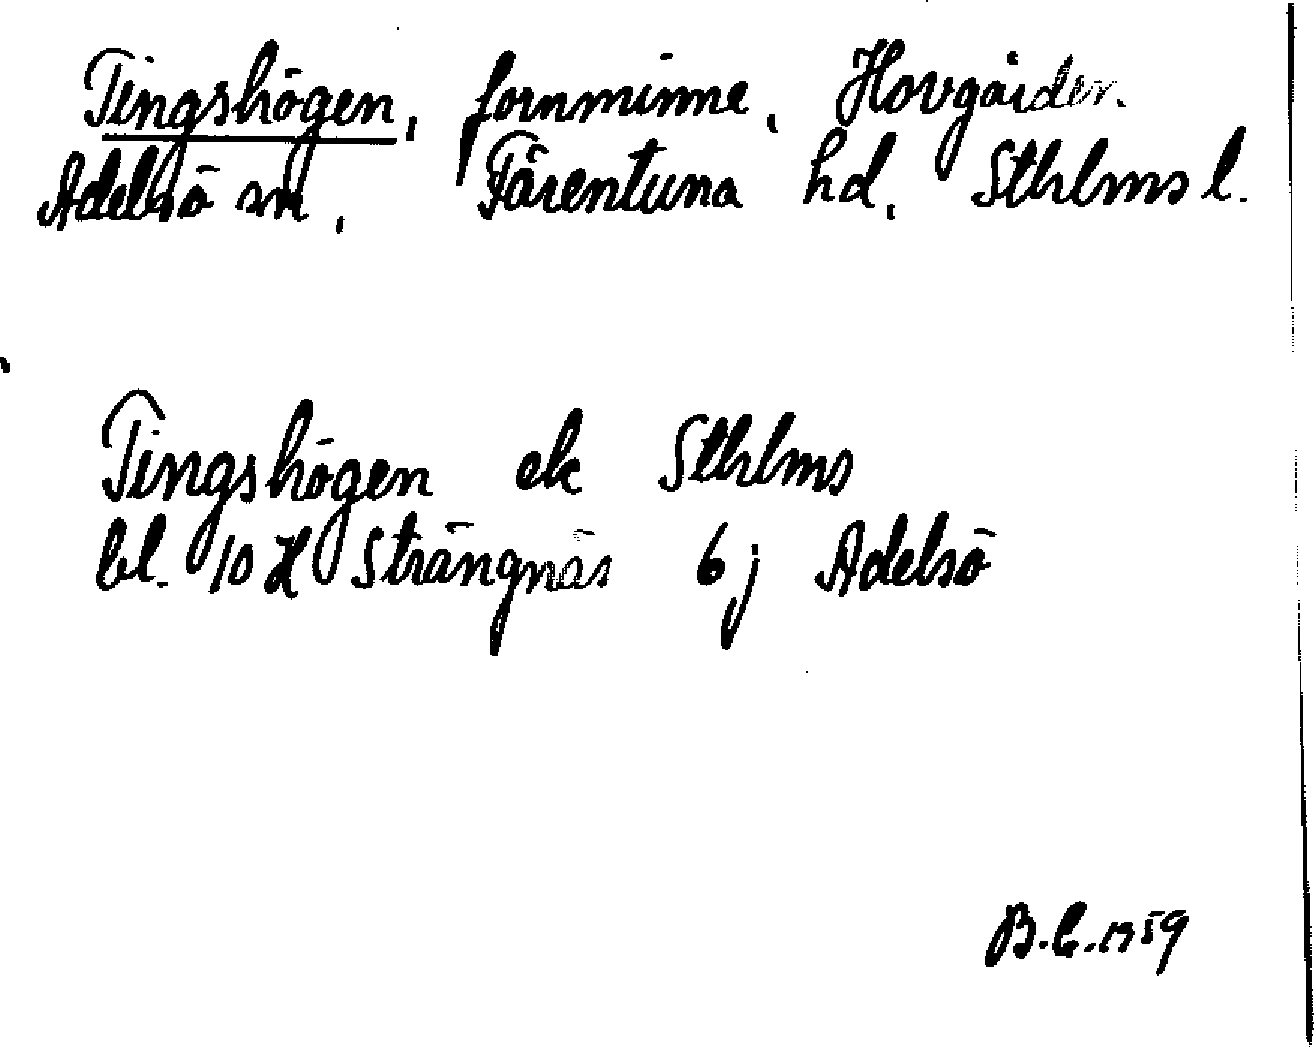 Tingshögen, fornminne, Hovgården.
Adelsö sn, Färentuna hd, Sthlms l.
Tingshögen ek Sthlms
bl. 10 H Strängnäs 6j Adelsö
B.C. 1959